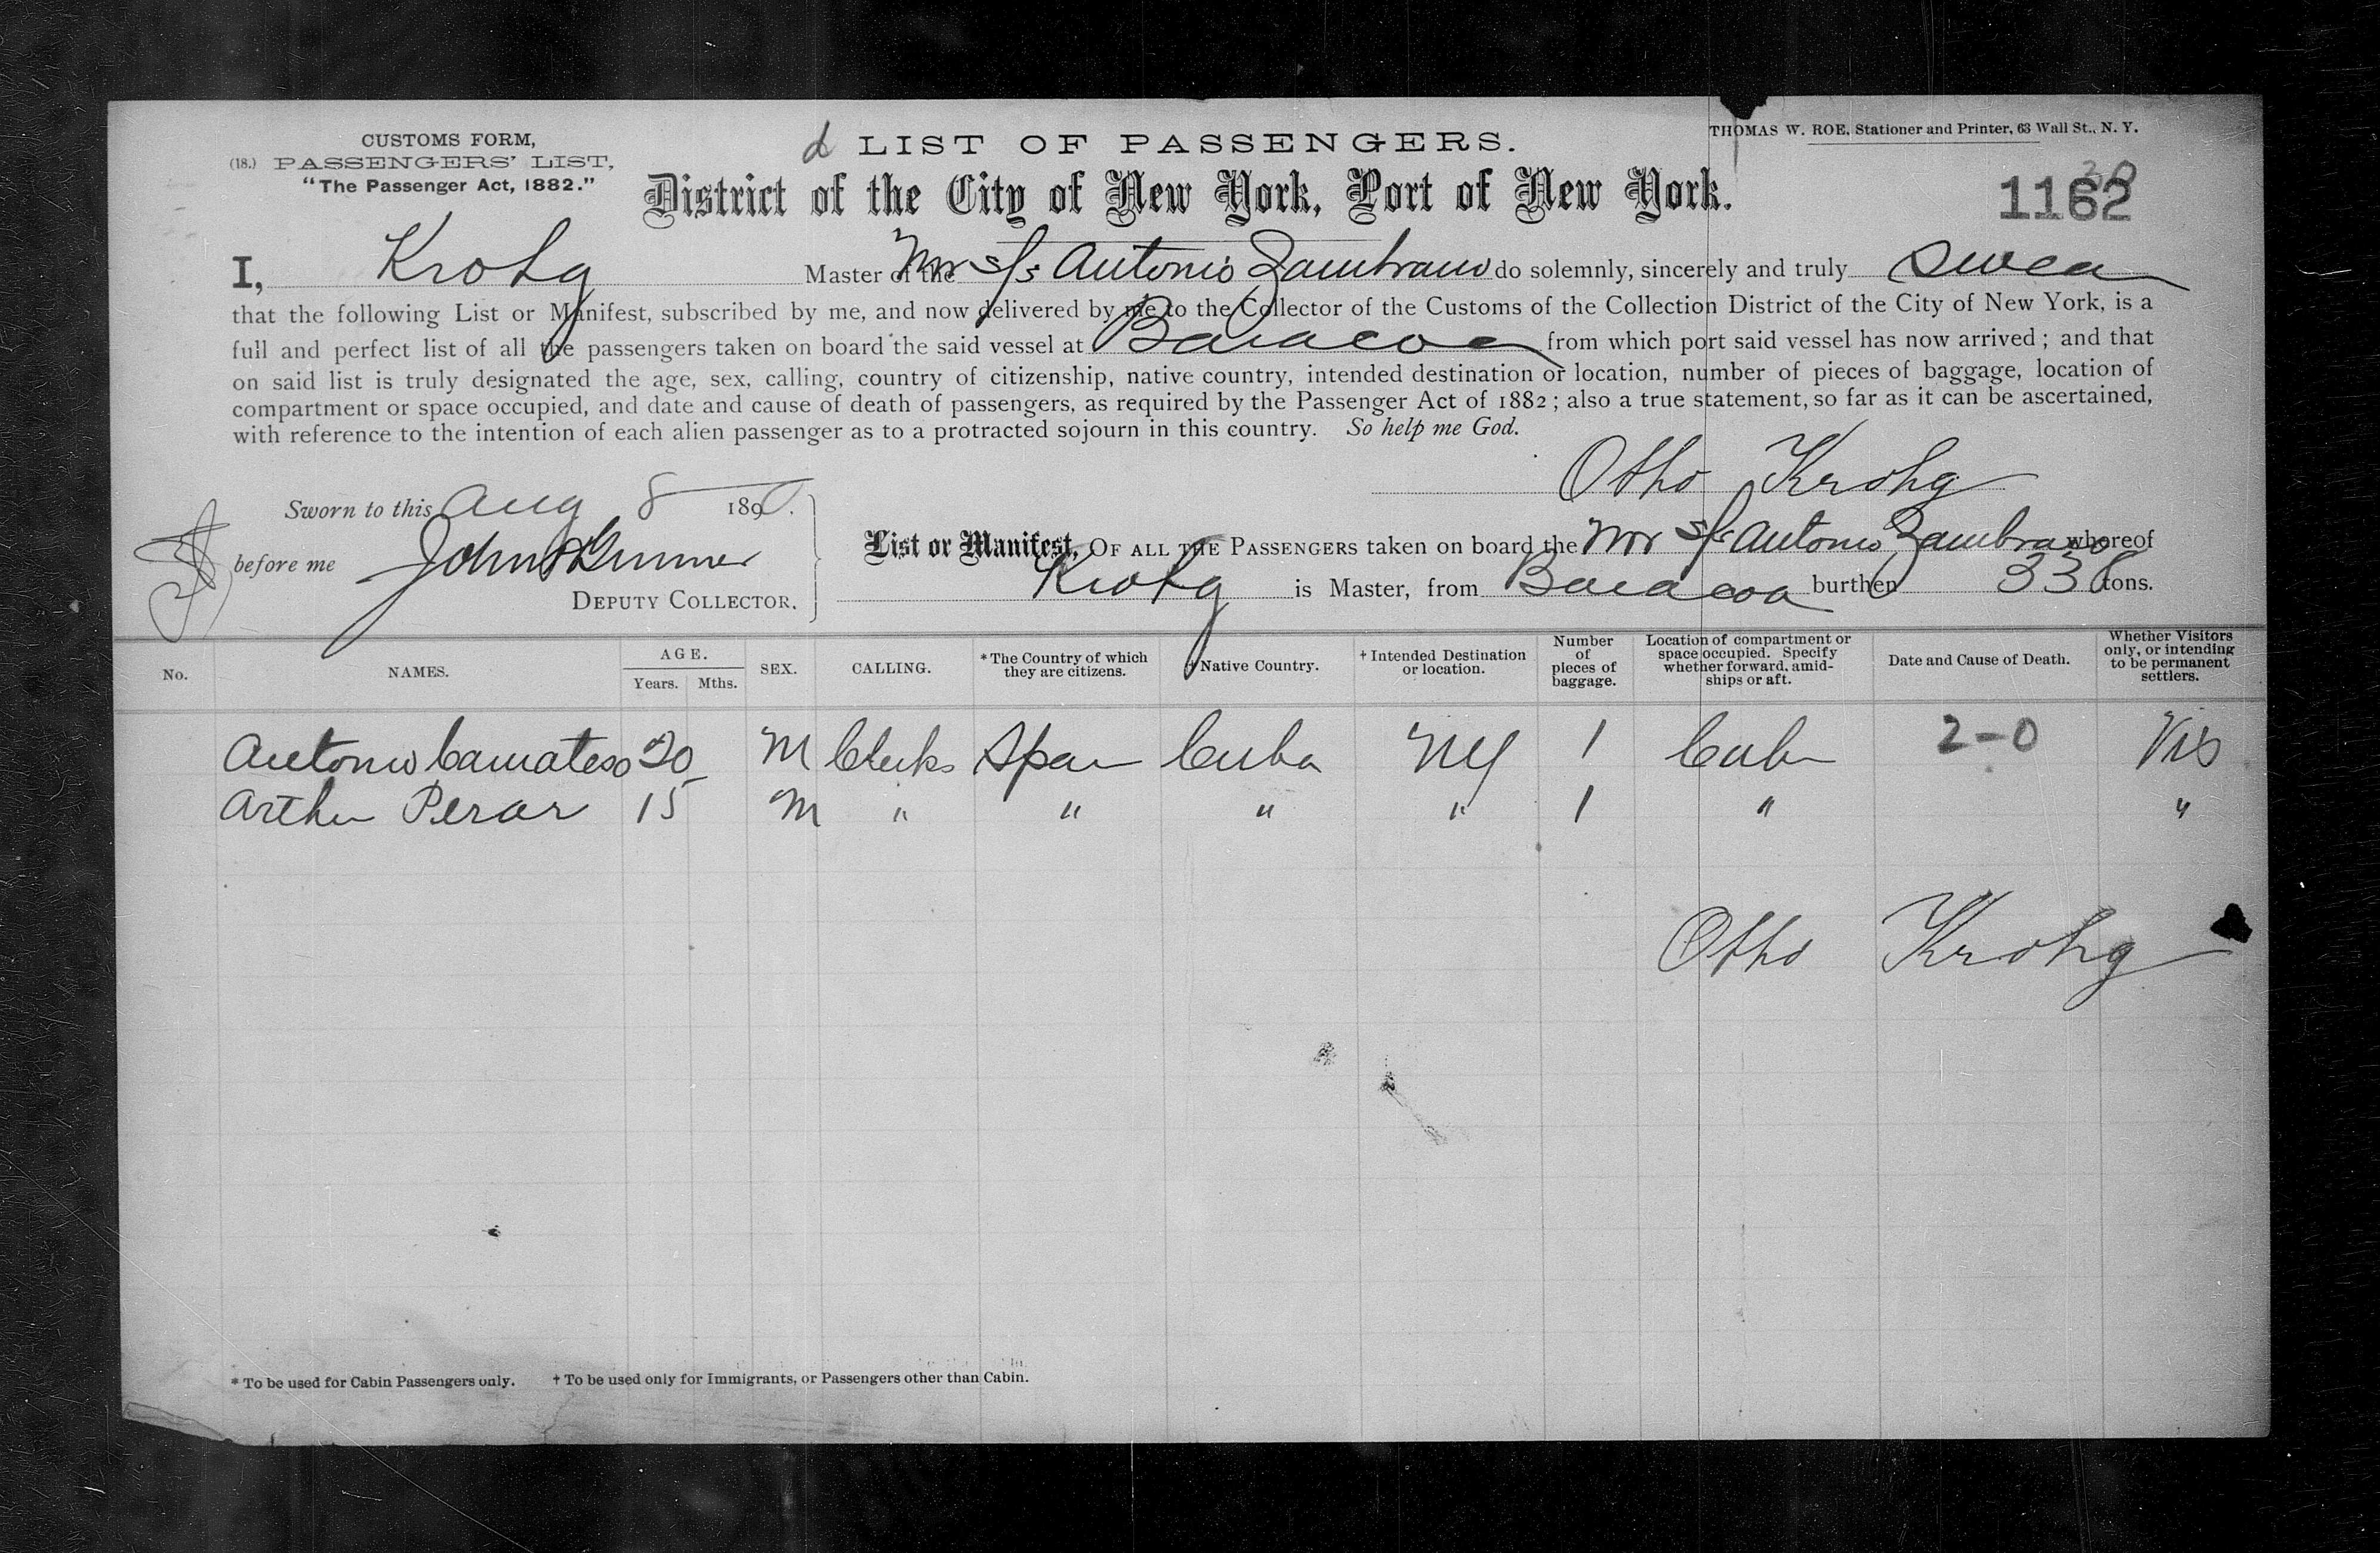 CUSTOMS FORM,
(18.) PASSENGERS' LIST,
"The Passenger Act, 1882."
d LIST OF PASSENGERS.
THOMAS W. ROE, Stationer and Printer, 63 Wall St., N. Y.
District of the City of New York, Port of New York.
30
1162
I, Krohg Master of the Nor S/s Antonio Zambrano do solemnly, sincerely and truly swear
that the following List or Manifest, subscribed by me, and now delivered by me to the Collector of the Customs of the Collection District of the City of New York, is a
full and perfect list of all the passengers taken on board the said vessel at Baracoa from which port said vessel has now arrived; and that
on said list is truly designated the age, sex, calling, country of citizenship, native country, intended destination or location, number of pieces of baggage, location of
compartment or space occupied, and date and cause of death of passengers, as required by the Passenger Act of 1882; also a true statement, so far as it can be ascertained,
with reference to the intention of each alien passenger as to a protracted sojourn in this country. So help me God.
Otho Krohg
Sworn to this Aug 8 1890.
before me John
DEPUTY COLLECTOR.
List or Manifest, OF ALL THE PASSENGERS taken on board the Nor S/s Antonio Zambrano whereof
Krohg is Master, from Baracoa burthen 338 tons.
No. NAMES. AGE. Years. Mths. SEX. CALLING. *The Country of which they are citizens. †Native Country. †Intended Destination or location. Number of pieces of baggage. Location of compartment or space occupied. Specify whether forward, amidships or aft. Date and Cause of Death. Whether Visitors only, or intending to be permanent settlers.
Antonio 20 M Clerks Spain Cuba NY 1 Cabin 2-0 Vis
Arthur 15 M " " " " 1 " "
Otho Krohg
* To be used for Cabin Passengers only. † To be used only for Immigrants, or Passengers other than Cabin.